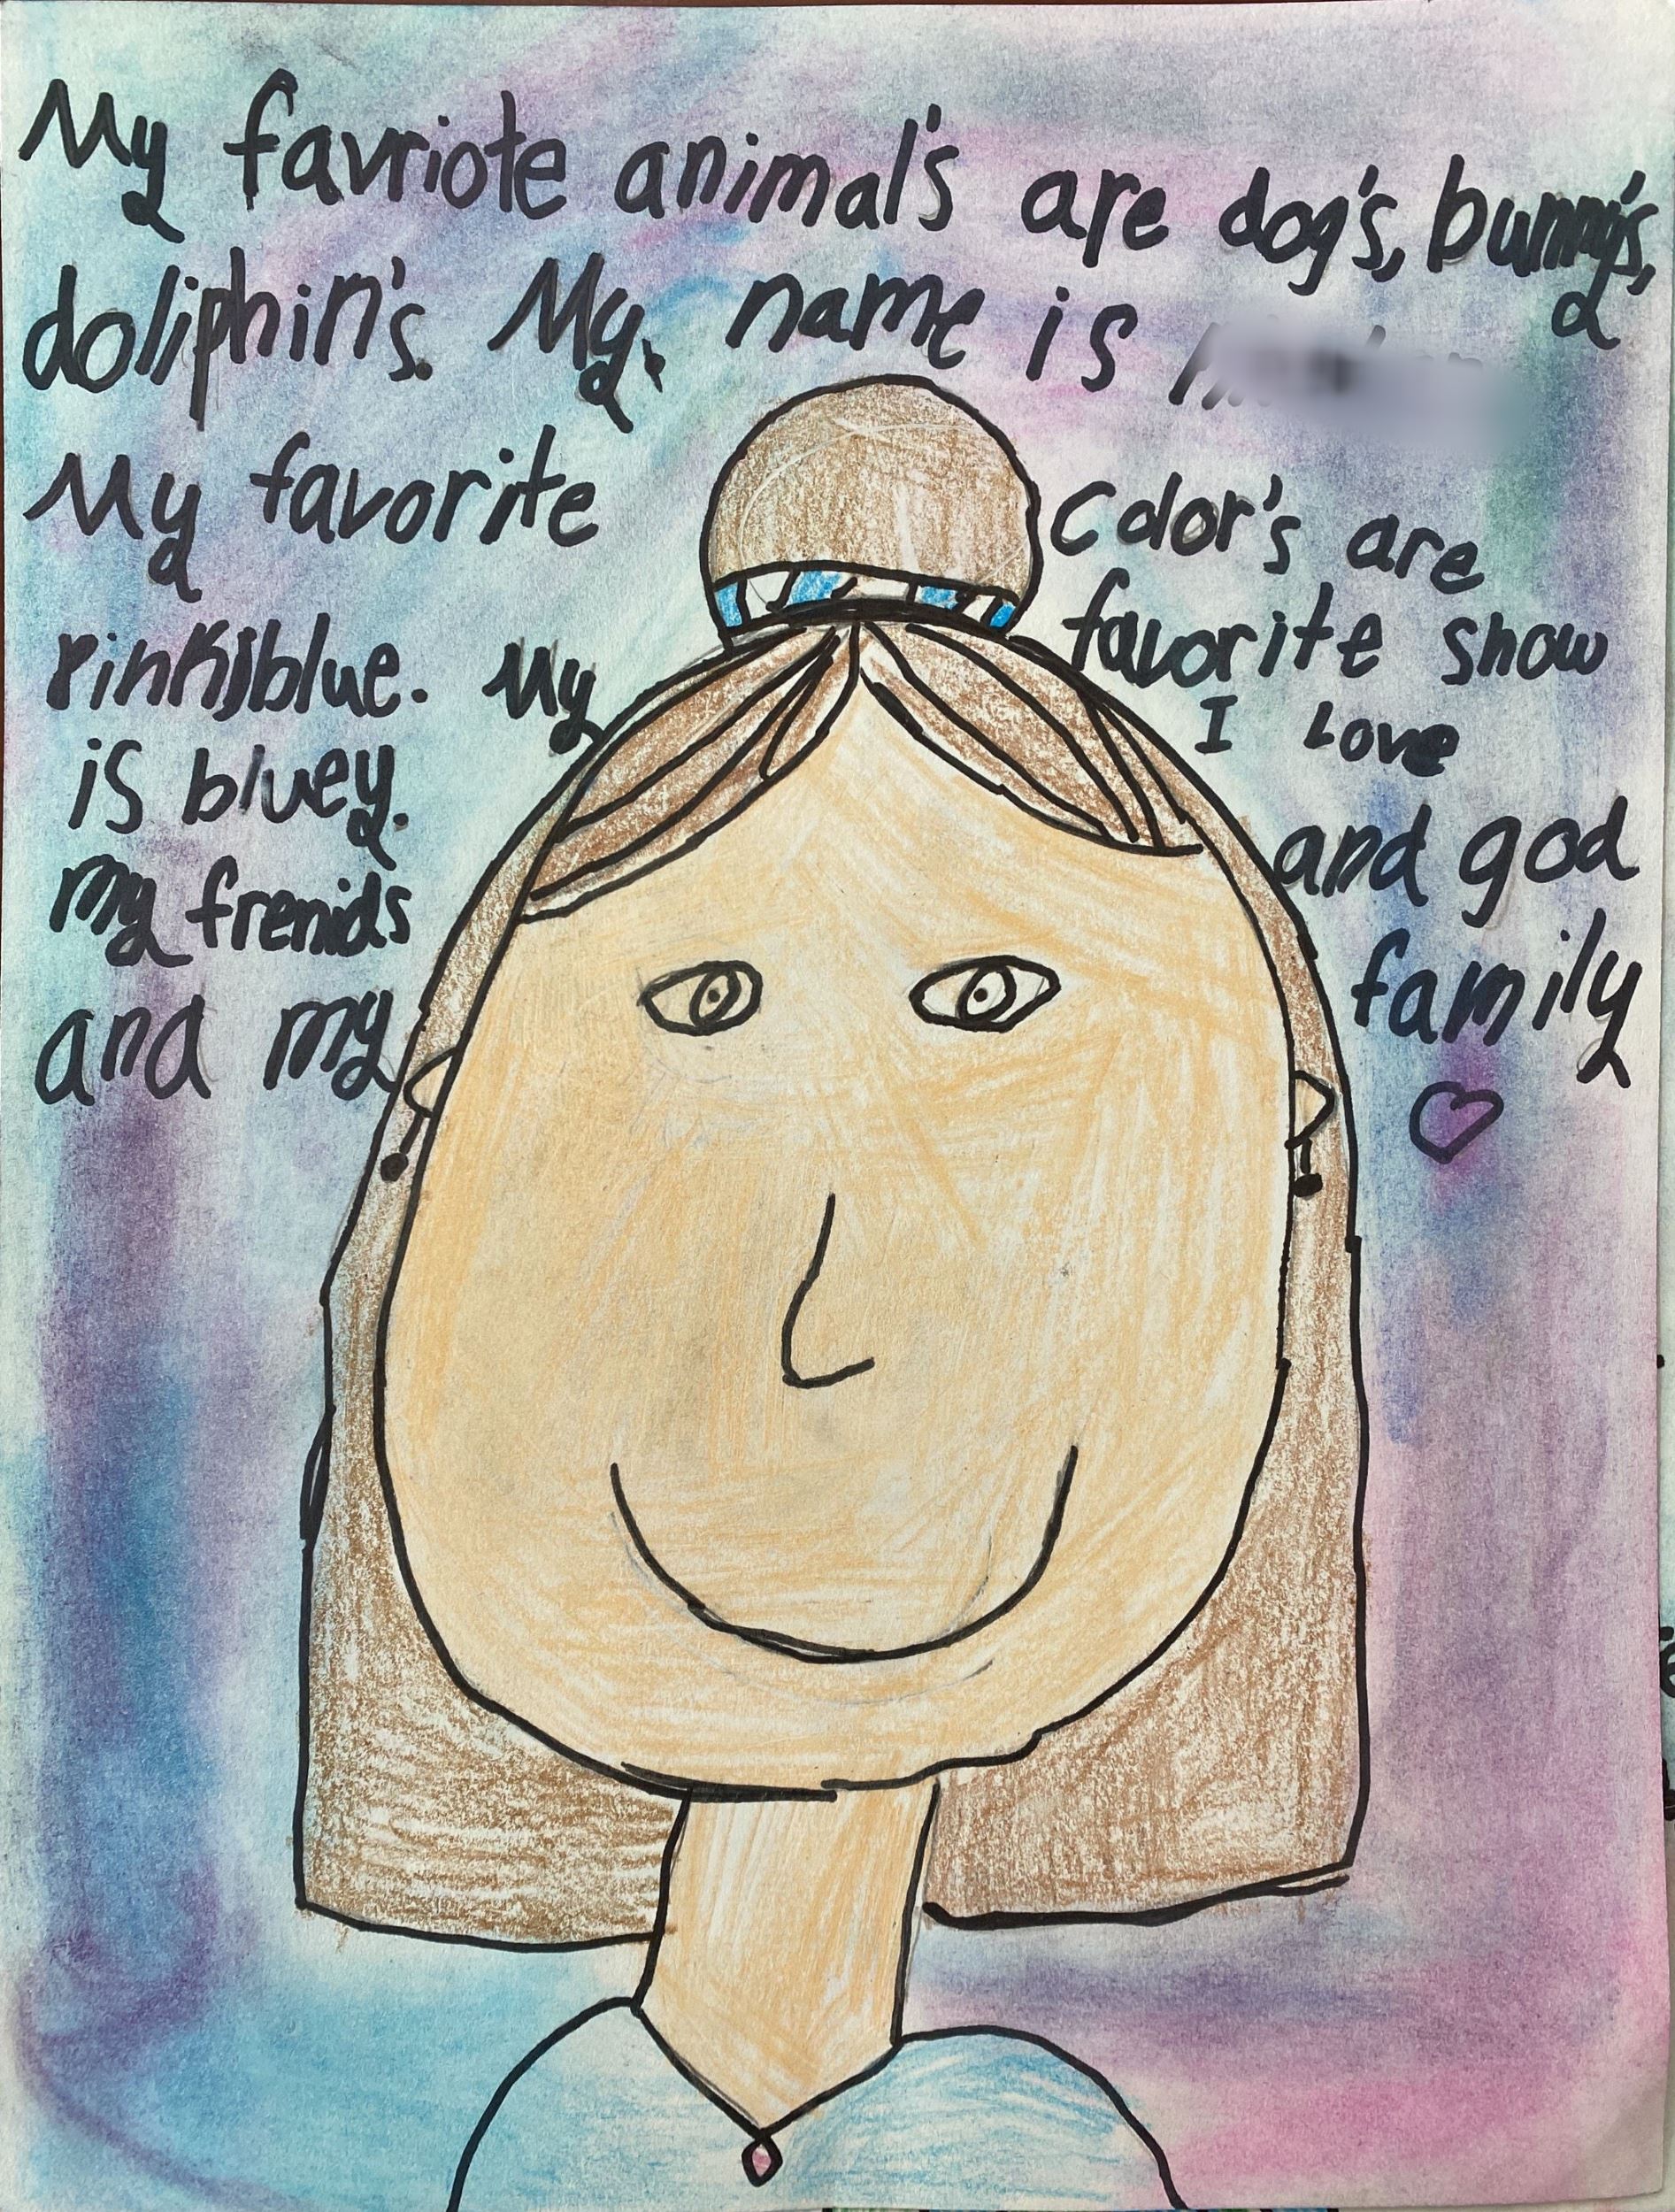 My favriote animal's are dog's, bunny's,
doliphin's. My name is
My favorite color's are
pink,blue. My favorite show
is bluey. I Love
my frenids and god
and my family